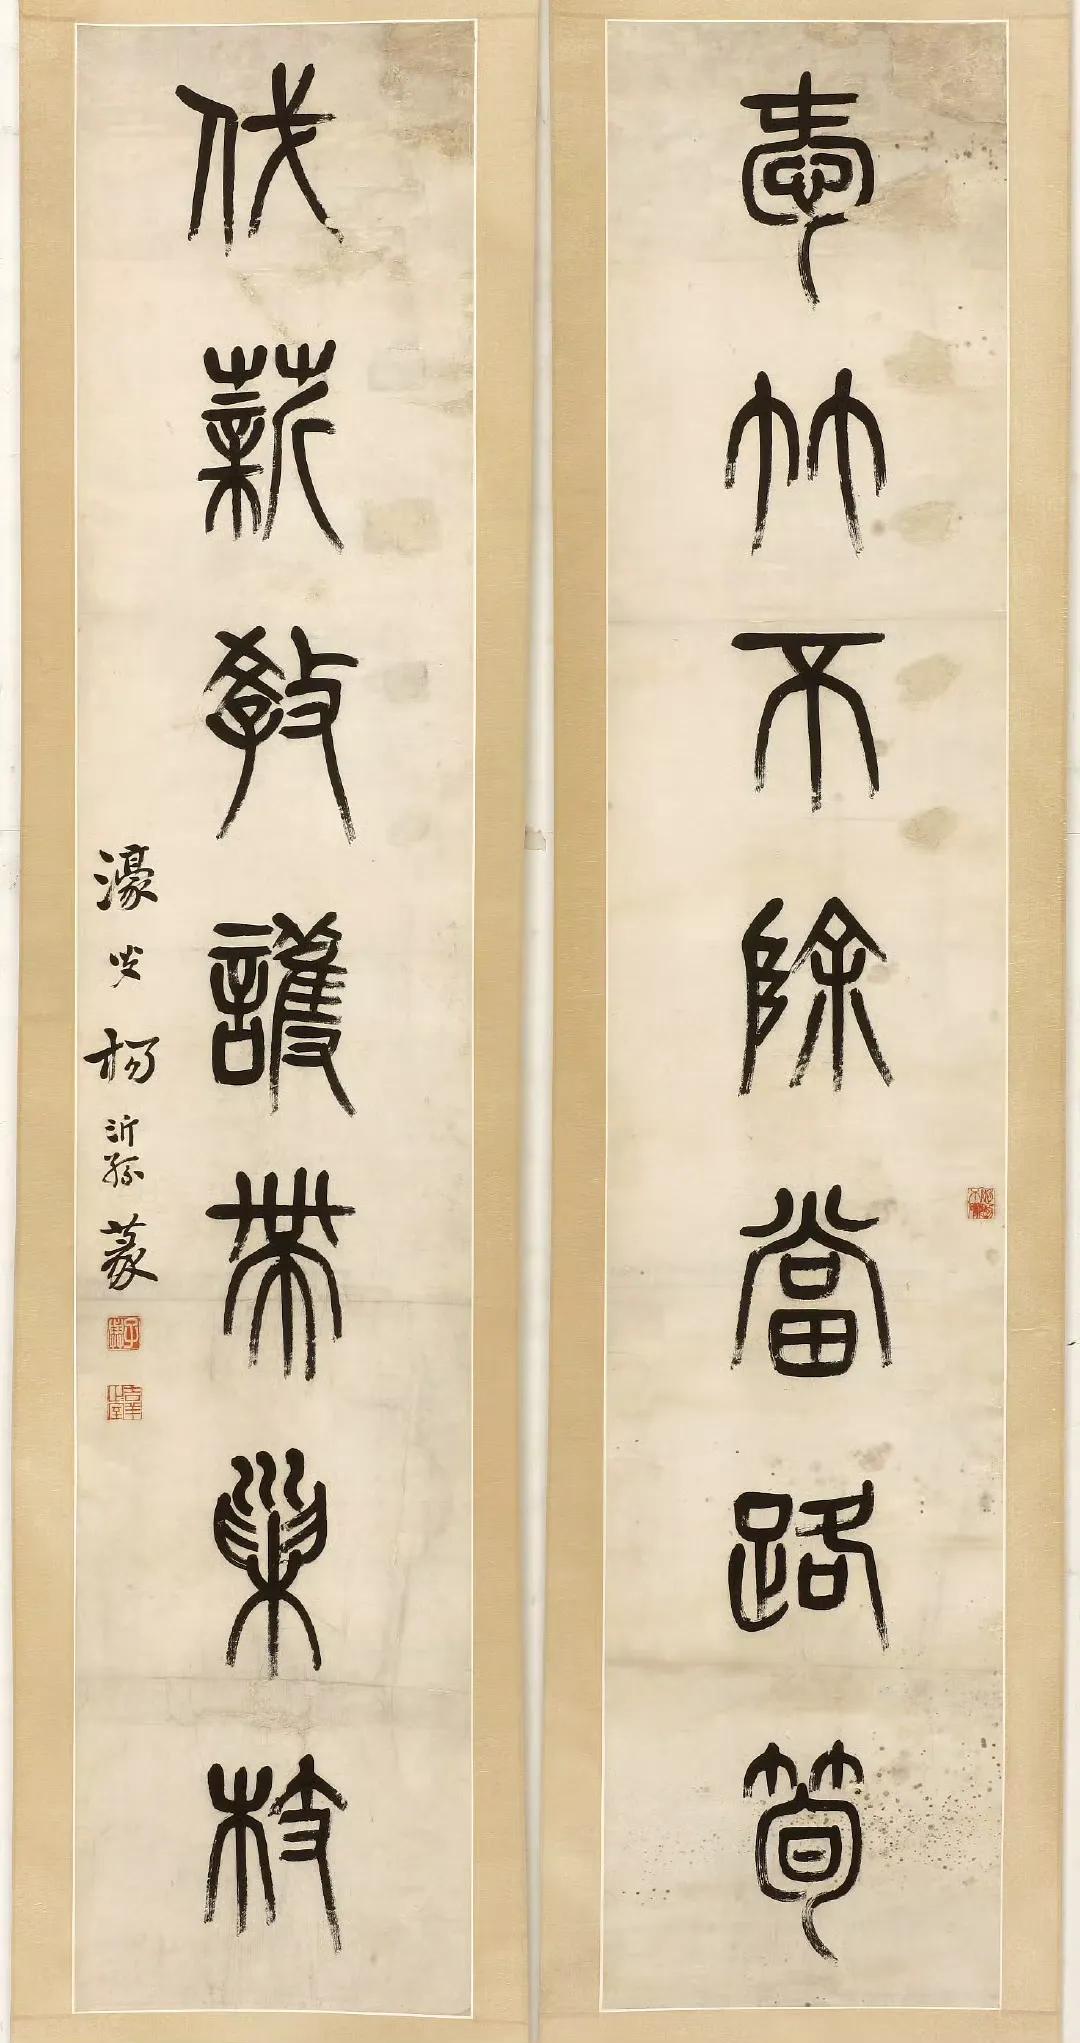 愛竹不除當路筍
伐薪教護帶巢枝
濠叟楊沂孫篆